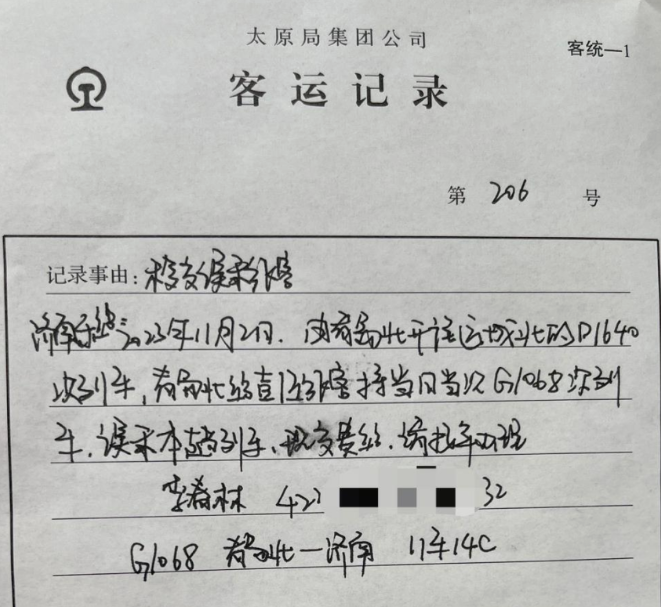 太原局集团公司
客统—1
客运记录
第 206 号
记录事由：移交误乘旅客
济南东站：2023年11月2日，由青岛北开往运城北的D1640
次列车，青岛北站 旅客持当日当次G1068次列
车，误乘本趟列车，现交贵站，请按章办理
李春林 422 32
G1068 青岛北—济南 11车14C